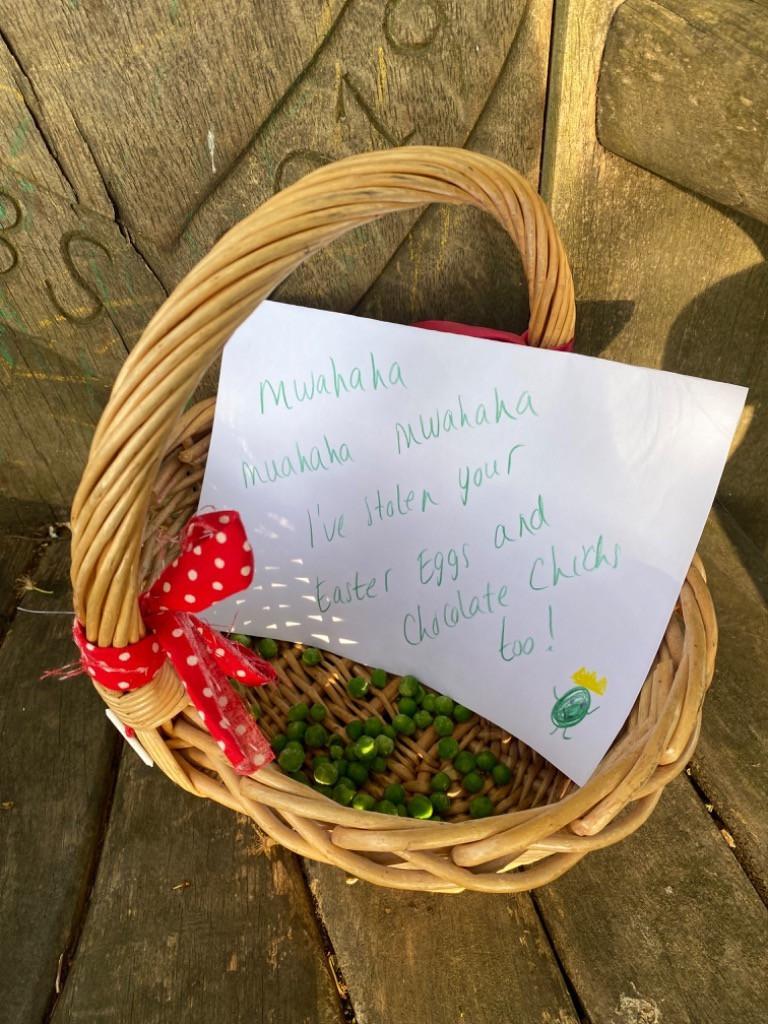 mwahaha
muahaha mwahaha
I've stolen your
Easter Eggs and
Chocolate Chicks
too!